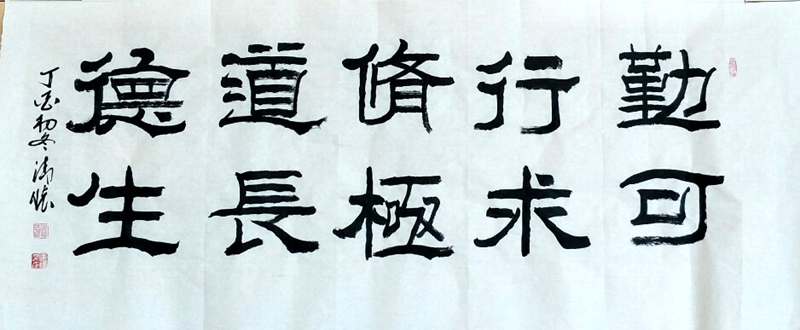 勤行脩道德
可求極長生
丁酉初冬